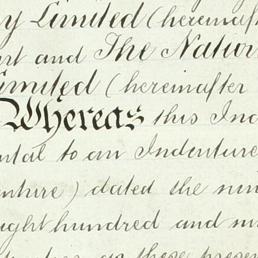 y Limited (hereinaf
rt and The Natur
imited (hereinafter
Whereas this Ind
ntal to an Indenture
enture) dated the nin
ight hundred and ni
as these prese